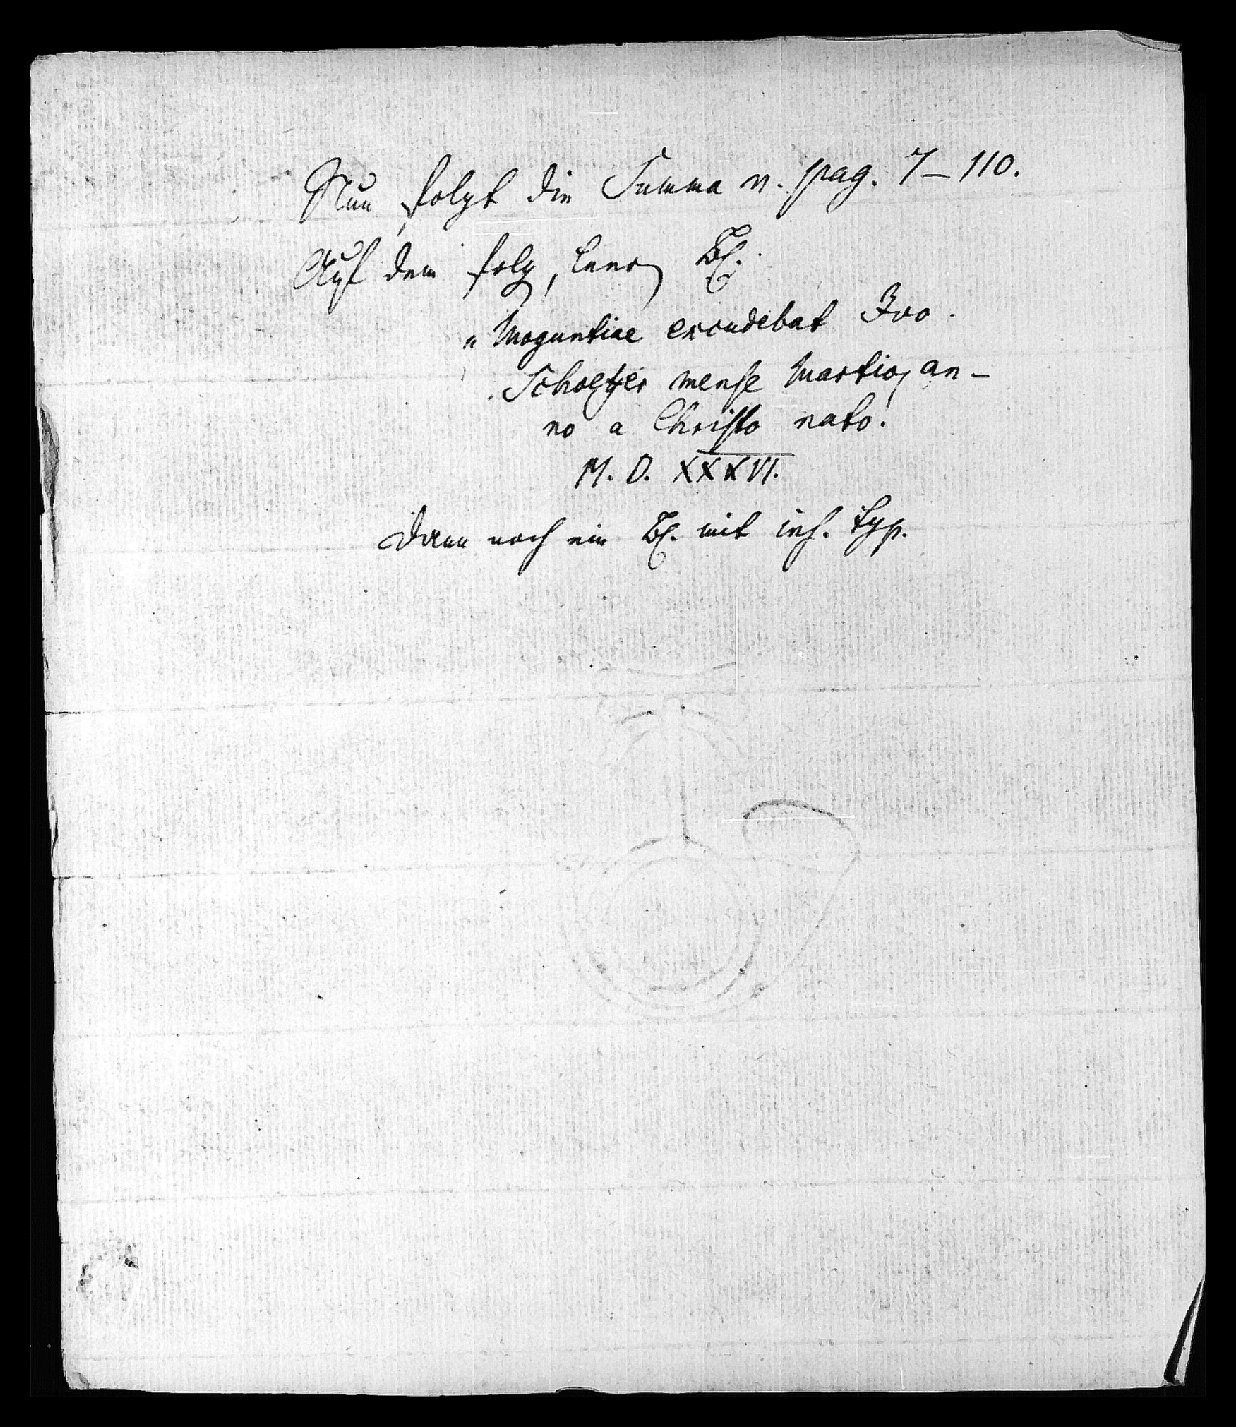 Nun folgt die Summa v. pag. 7–110.
Auf dem folg, leeren Bl.
„Moguntiae excudebat Ivo
Schoeffer mense Martio, an–
no a Christo nato.
M. D. XXXVI.
Dann noch ein Bl. mit ins. typ.